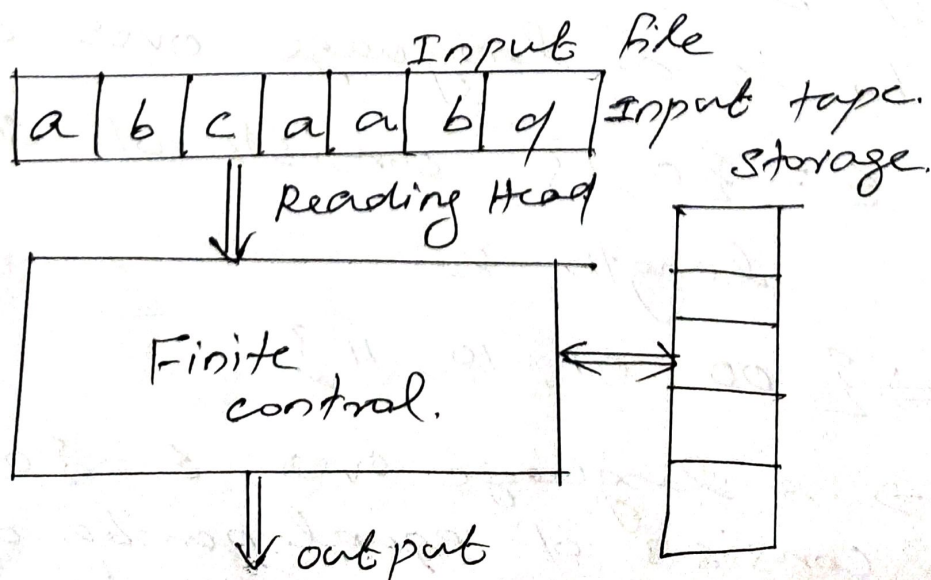 Input file
a b c a a b q
Input tape.
storage.
Reading Head
Finite
control.
output